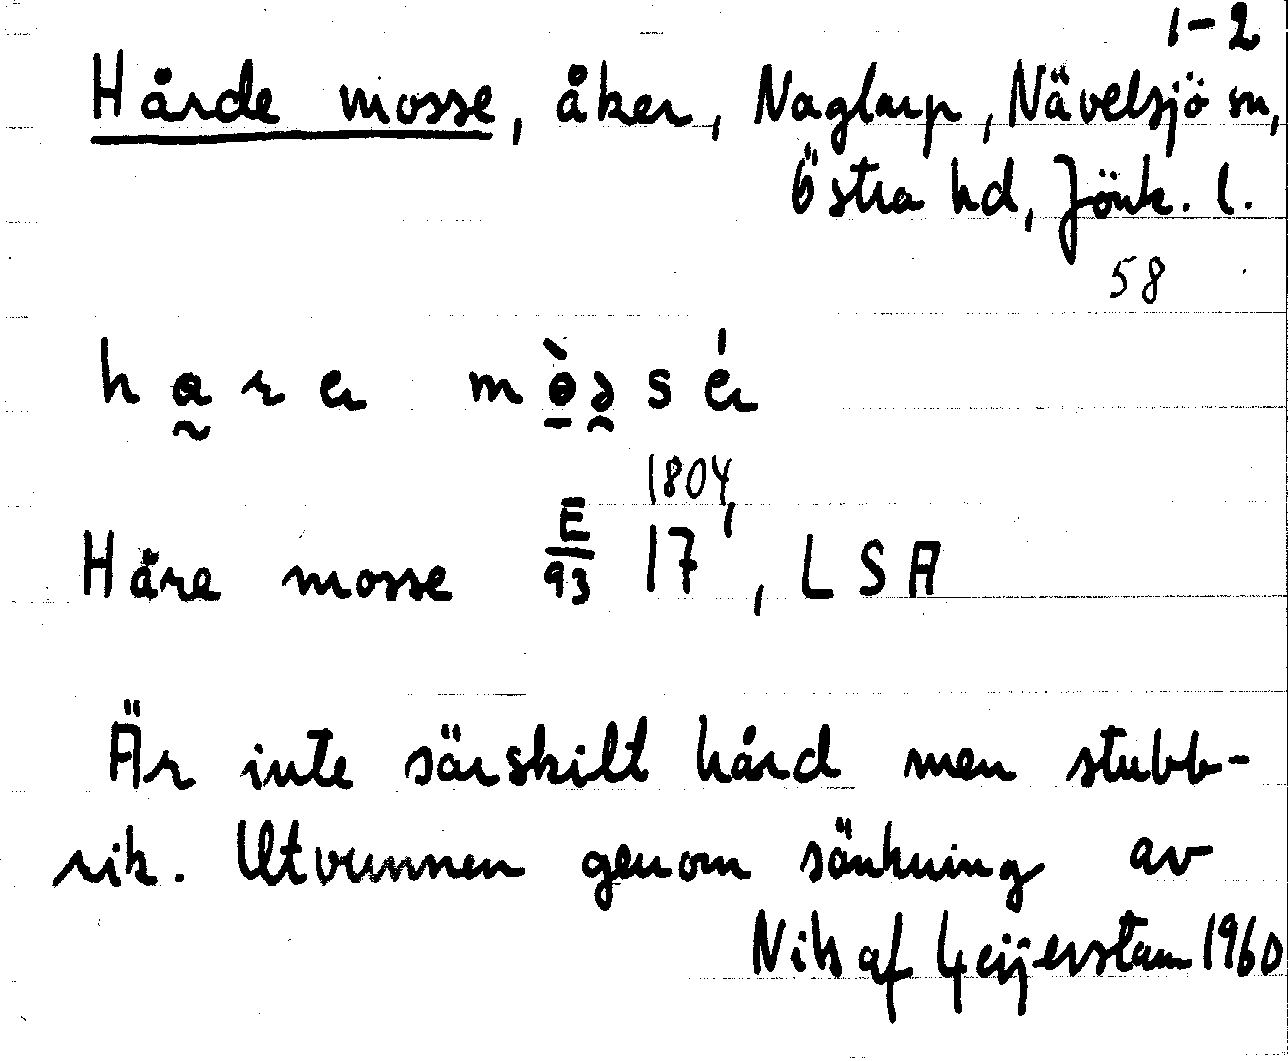 1-2
Hårde mosse, åker, Naglarp, Nävelsjö sn,
Östra hd, Jönk. l.
58
Håre mosse E/93 17, 1804, LSA
Är inte särskilt hård men stubb-
rik. Utvunnen genom sänkning av
Nils af Geijerstam 1960